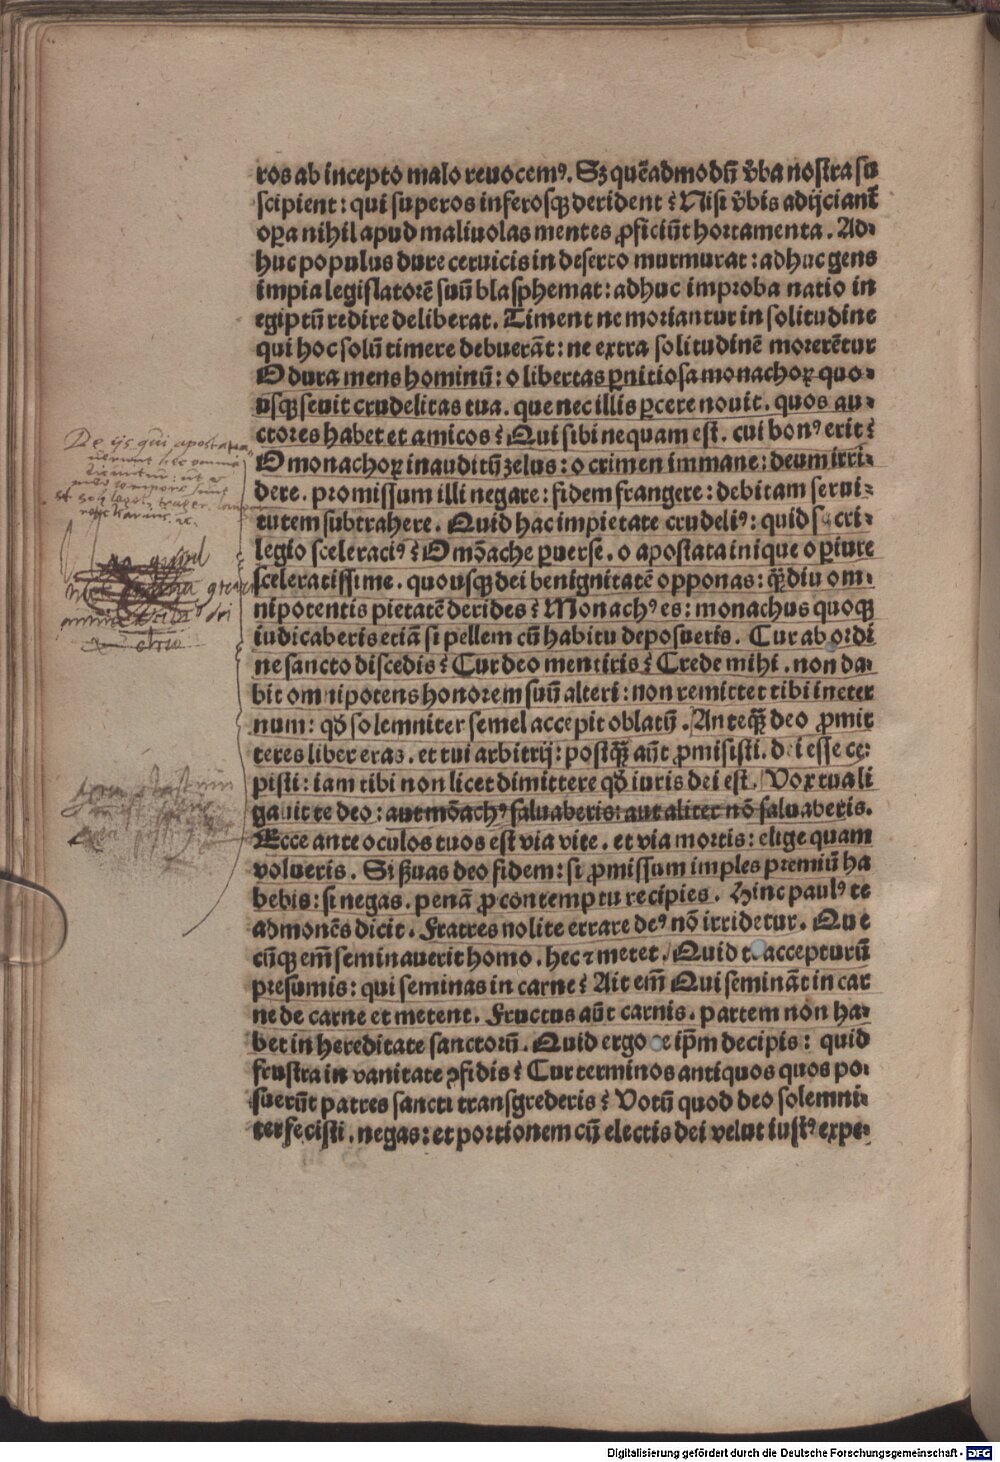 ros ab incepto malo reuocemꝰ. Sꝫ quẽadmodũ v̓ba nostra su
scipient: qui superos inferosqꝫ derident? Nisi v̓bis adijciant̃
oꝑa nihil apud maliuolas mentes ꝓficiũt hortamenta. Ad-
huc populus dure ceruicis in deserto murmurat: adhuc gens
impia legislatorẽ suũ blasphemat: adhuc improba natio in
egiptũ redire deliberat. Timent ne moriantur in solitudine
qui hoc solũ timere debuerãt: ne extra solitudinẽ morerẽtur
O dura mens hominũ: o libertas ꝑnitiosa monachoꝝ quo-
usqꝫ seuit crudelitas tua. que nec illis ꝑcere nouit. quos au-
ctores habet et amicos? Qui sibi nequam est. cui bonꝰ erit?
O monachoꝝ inauditũ zelus: o crimen immane: deum irri-
dere. promissum illi negare: fidem frangere: debitam serui-
tutem subtrahere. Quid hac impietate crudeliꝰ: quid sacri-
legio sceleraciꝰ? O mõache ꝑuerse. o apostata inique o ꝑiure
sceleratissime. quousqꝫ dei benignitatẽ opponas: qꝫ̃diu om-
nipotentis pietatẽ derides? Monachꝰ es: monachus quoqꝫ
iudicaberis etiã si pellem cũ habitu deposueris. Cur ab ordi
ne sancto discedis? Cur deo mentiris? Crede mihi. non da-
bit omnipotens honorem suũ alteri: non remittet tibi in eter
num: qđ solemniter semel accepit oblatũ. Anteqꝫ̃ deo ꝓmit
teres liber eras. et tui arbitrij: postqꝫ̃ aũt ꝓmisisti. dei esse ce-
pisti: iam tibi non licet dimittere qđ iuris dei est. Vox tua li
gauit te deo: aut mõachꝰ saluaberis: aut aliter nõ saluaberis.
Ecce ante oculos tuos est via vite. et via mortis: elige quam
volueris. Si ẞuas deo fidem: si ꝓmissum imples premiũ ha
bebis: si negas. penã ꝓ contemptu recipies. Hinc paulꝰ te
admonẽs dicit. Fratres nolite errare deꝰ nõ irridetur. Que
cũqꝫ em̃ seminauerit homo. hec ⁊ metet. Quid te accepturũ
presumis: qui seminas in carne? Ait em̃ Qui seminãt in car
ne de carne et metent. Fructus aũt carnis. partem non ha-
bet in hereditate sanctorũ. Quid ergo te ip̃m decipis: quid
frustra in vanitate ꝯfidis? Cur terminos antiquos quos po-
suerũt patres sancti transgrederis? Votũ quod deo solemni-
ter fecisti. negas: et portionem cũ electis dei velut iustꝰ expe-
De ijs qui apostata
Digitalisierung gefördert durch die Deutsche Forschungsgemeinschaft - DFG